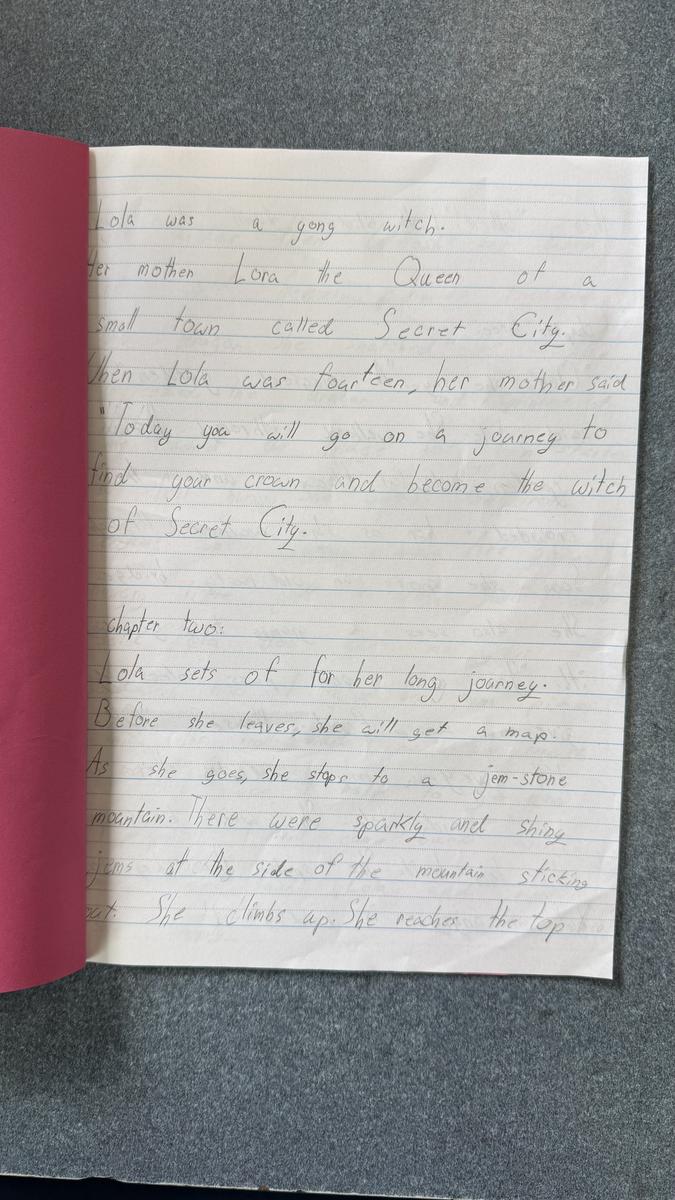 Lola was a yong witch.
Her mother Lora the Queen of a
small town called Secret City.
When Lola was fourteen, her mother said
"Today you will go on a journey to
find your crown and become the witch
of Secret City.
chapter two:
Lola sets of for her long journey.
Before she leaves, she will get a map.
As she goes, she stops to a jem-stone
mountain. There were sparkly and shiny
jems at the side of the mountain sticking
out. She climbs up. She reaches the top